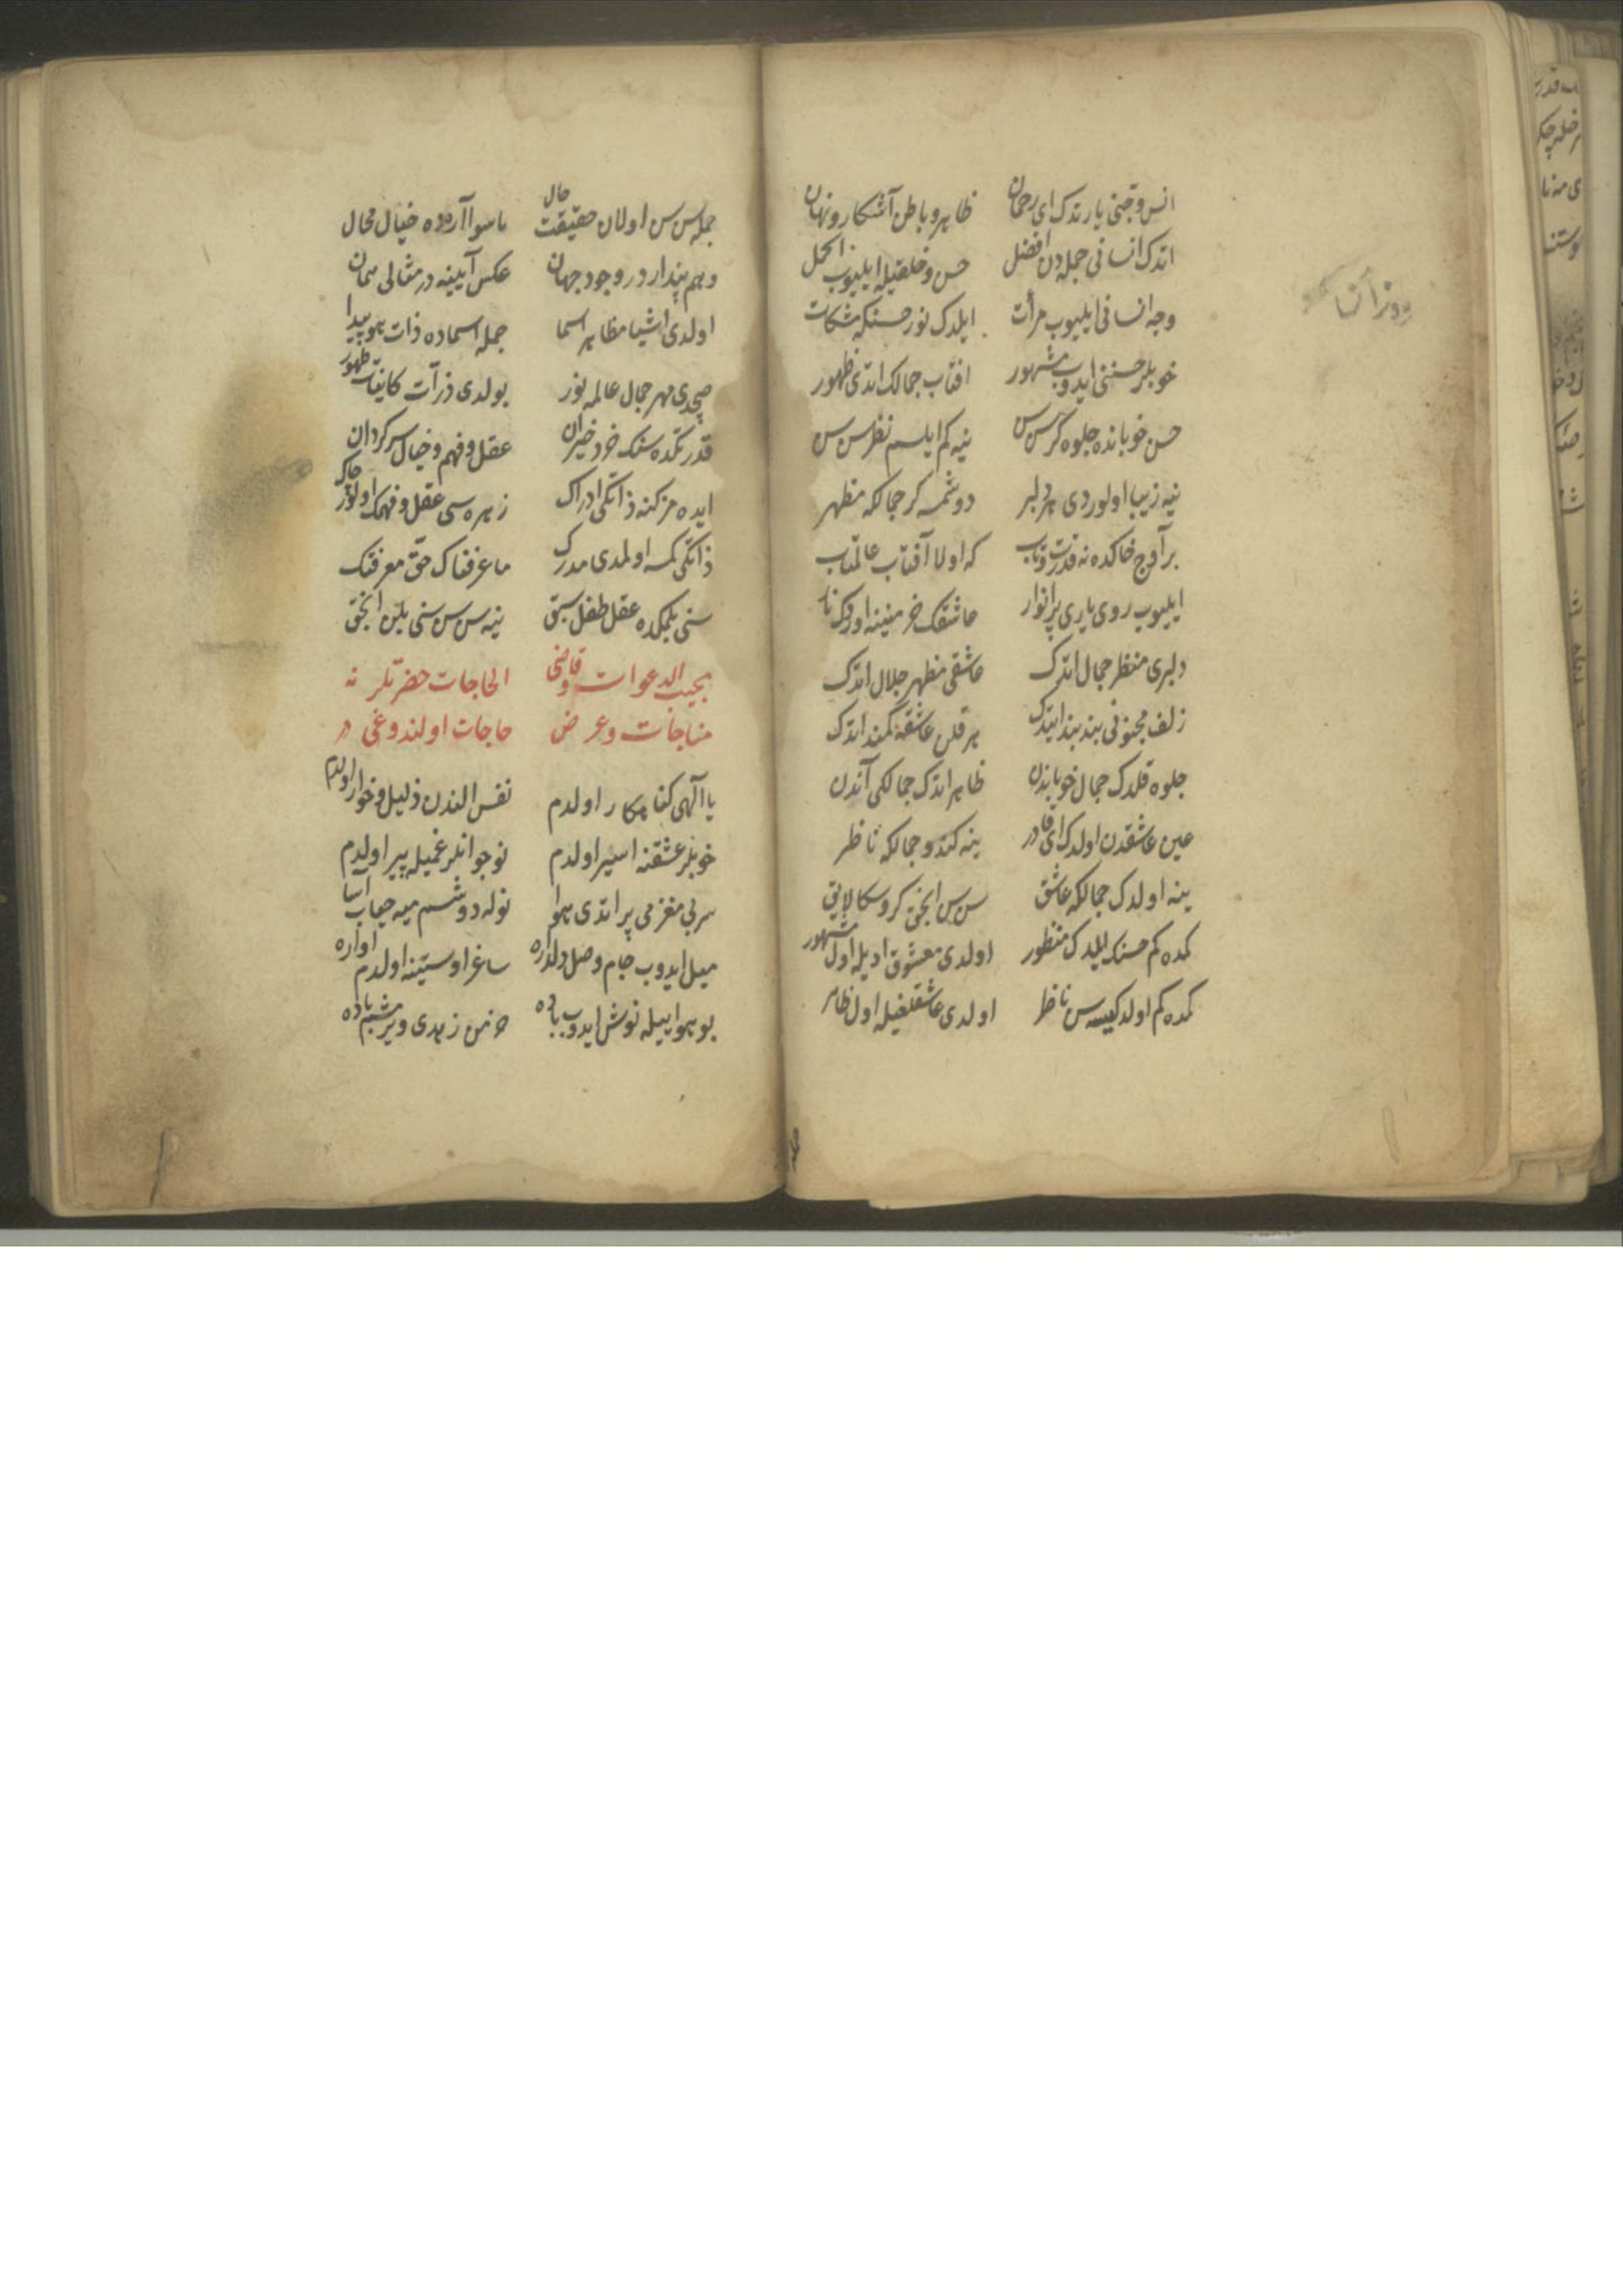 انس و جنی یارتدك ای رحمان ظاهر و باطن آشكار و نهان
اتدك انسانی جمله‌دن افضل حسن و خلقیله ایلیوب اكمل
وجه انسانی ایلیوب مرآت ایلدك نور حسنكه مشكات
خوبلر حسننی ایدوب مشهور افتاب جمالك اتدی ظهور
حسن خوبانده جلوه‌گر سن سن نیه كم ایلسم نظر سن سن
نیه زیبا اولوردی هر دلبر دوشمسه كر جمالكه مظهر
بر آوج خاكده نه قدرت و تاب كه اولا آفتاب عالمتاب
ایلیوب روی یاری پر انوار عاشقك خرمنینه اوردك نار
دلبری منظر جمال اتدك عاشقی مظهر جلال اتدك
زلف مجنونی بند بند ایتدك هر قلن عاشقه كمند اتدك
جلوه قلدك جمال خوباندن ظاهر اتدك جمالكی آندن
عین عاشقدن اولدك ای قادر ینه كندو جمالكه ناظر
ینه اولدك جمالكه عاشق سن سن انجق كرو سكا لایق
كمده كم حسنك ایلدك منظور اولدی معشوق ادیله اول مشهور
كمده كم اولدك ایسه سن ناظر اولدی عاشقلغیله اول ظاهر
روز آن
جمله سن سن اولان حقیقت حال ماسوا آراده خیال محال
وهم پنداردر وجود جهان عكس آیینه‌در مثالی همان
اولدی اشیا مظاهر اسما جمله اسماده ذات هو پیدا
صچدی مهر جمال عالمه نور بولدی ذرات كاینات ظهور
قدرتكده سنك خرد حیران عقل و فهم و خیال سركردان
ایده‌مز كنه ذاتكی ادراك زهره‌سی عقل و فهمك اولور چاك
ذاتكی كمسه اولمدی مدرك ما عرفناك حق معرفتك
سنی بلمكده عقل طفل سبق نیه سن سن سنی بلین انجق
مجیب الدعوات و قاضی الحاجات حضرتلرینه
مناجات و عرض حاجات اولندوغی در
یا الهی كناهكار اولدم نفس الندن ذلیل و خوار اولدم
خوبلر عشقنه اسیر اولدم نوجوانلر غمیله پیر اولدم
سر بی مغزمی پر اتدی هوا نوله دوشسم میه حباب آسا
میل ایدوب جام وصل دلداره ساغر اوستینه اولدم اواره
بو هوا ییله نوش ایدوب باده خرمن زهدی ویرمشم باده